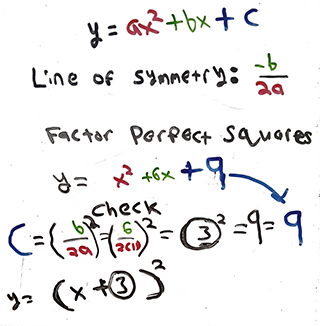 y = ax² + bx + c
Line of symmetry: -b/2a
Factor Perfect Squares
y = x² + 6x + 9
Check
C = (b/2a)² = (6/2(1))² = (3)² = 9 = 9
y = (x + 3)²